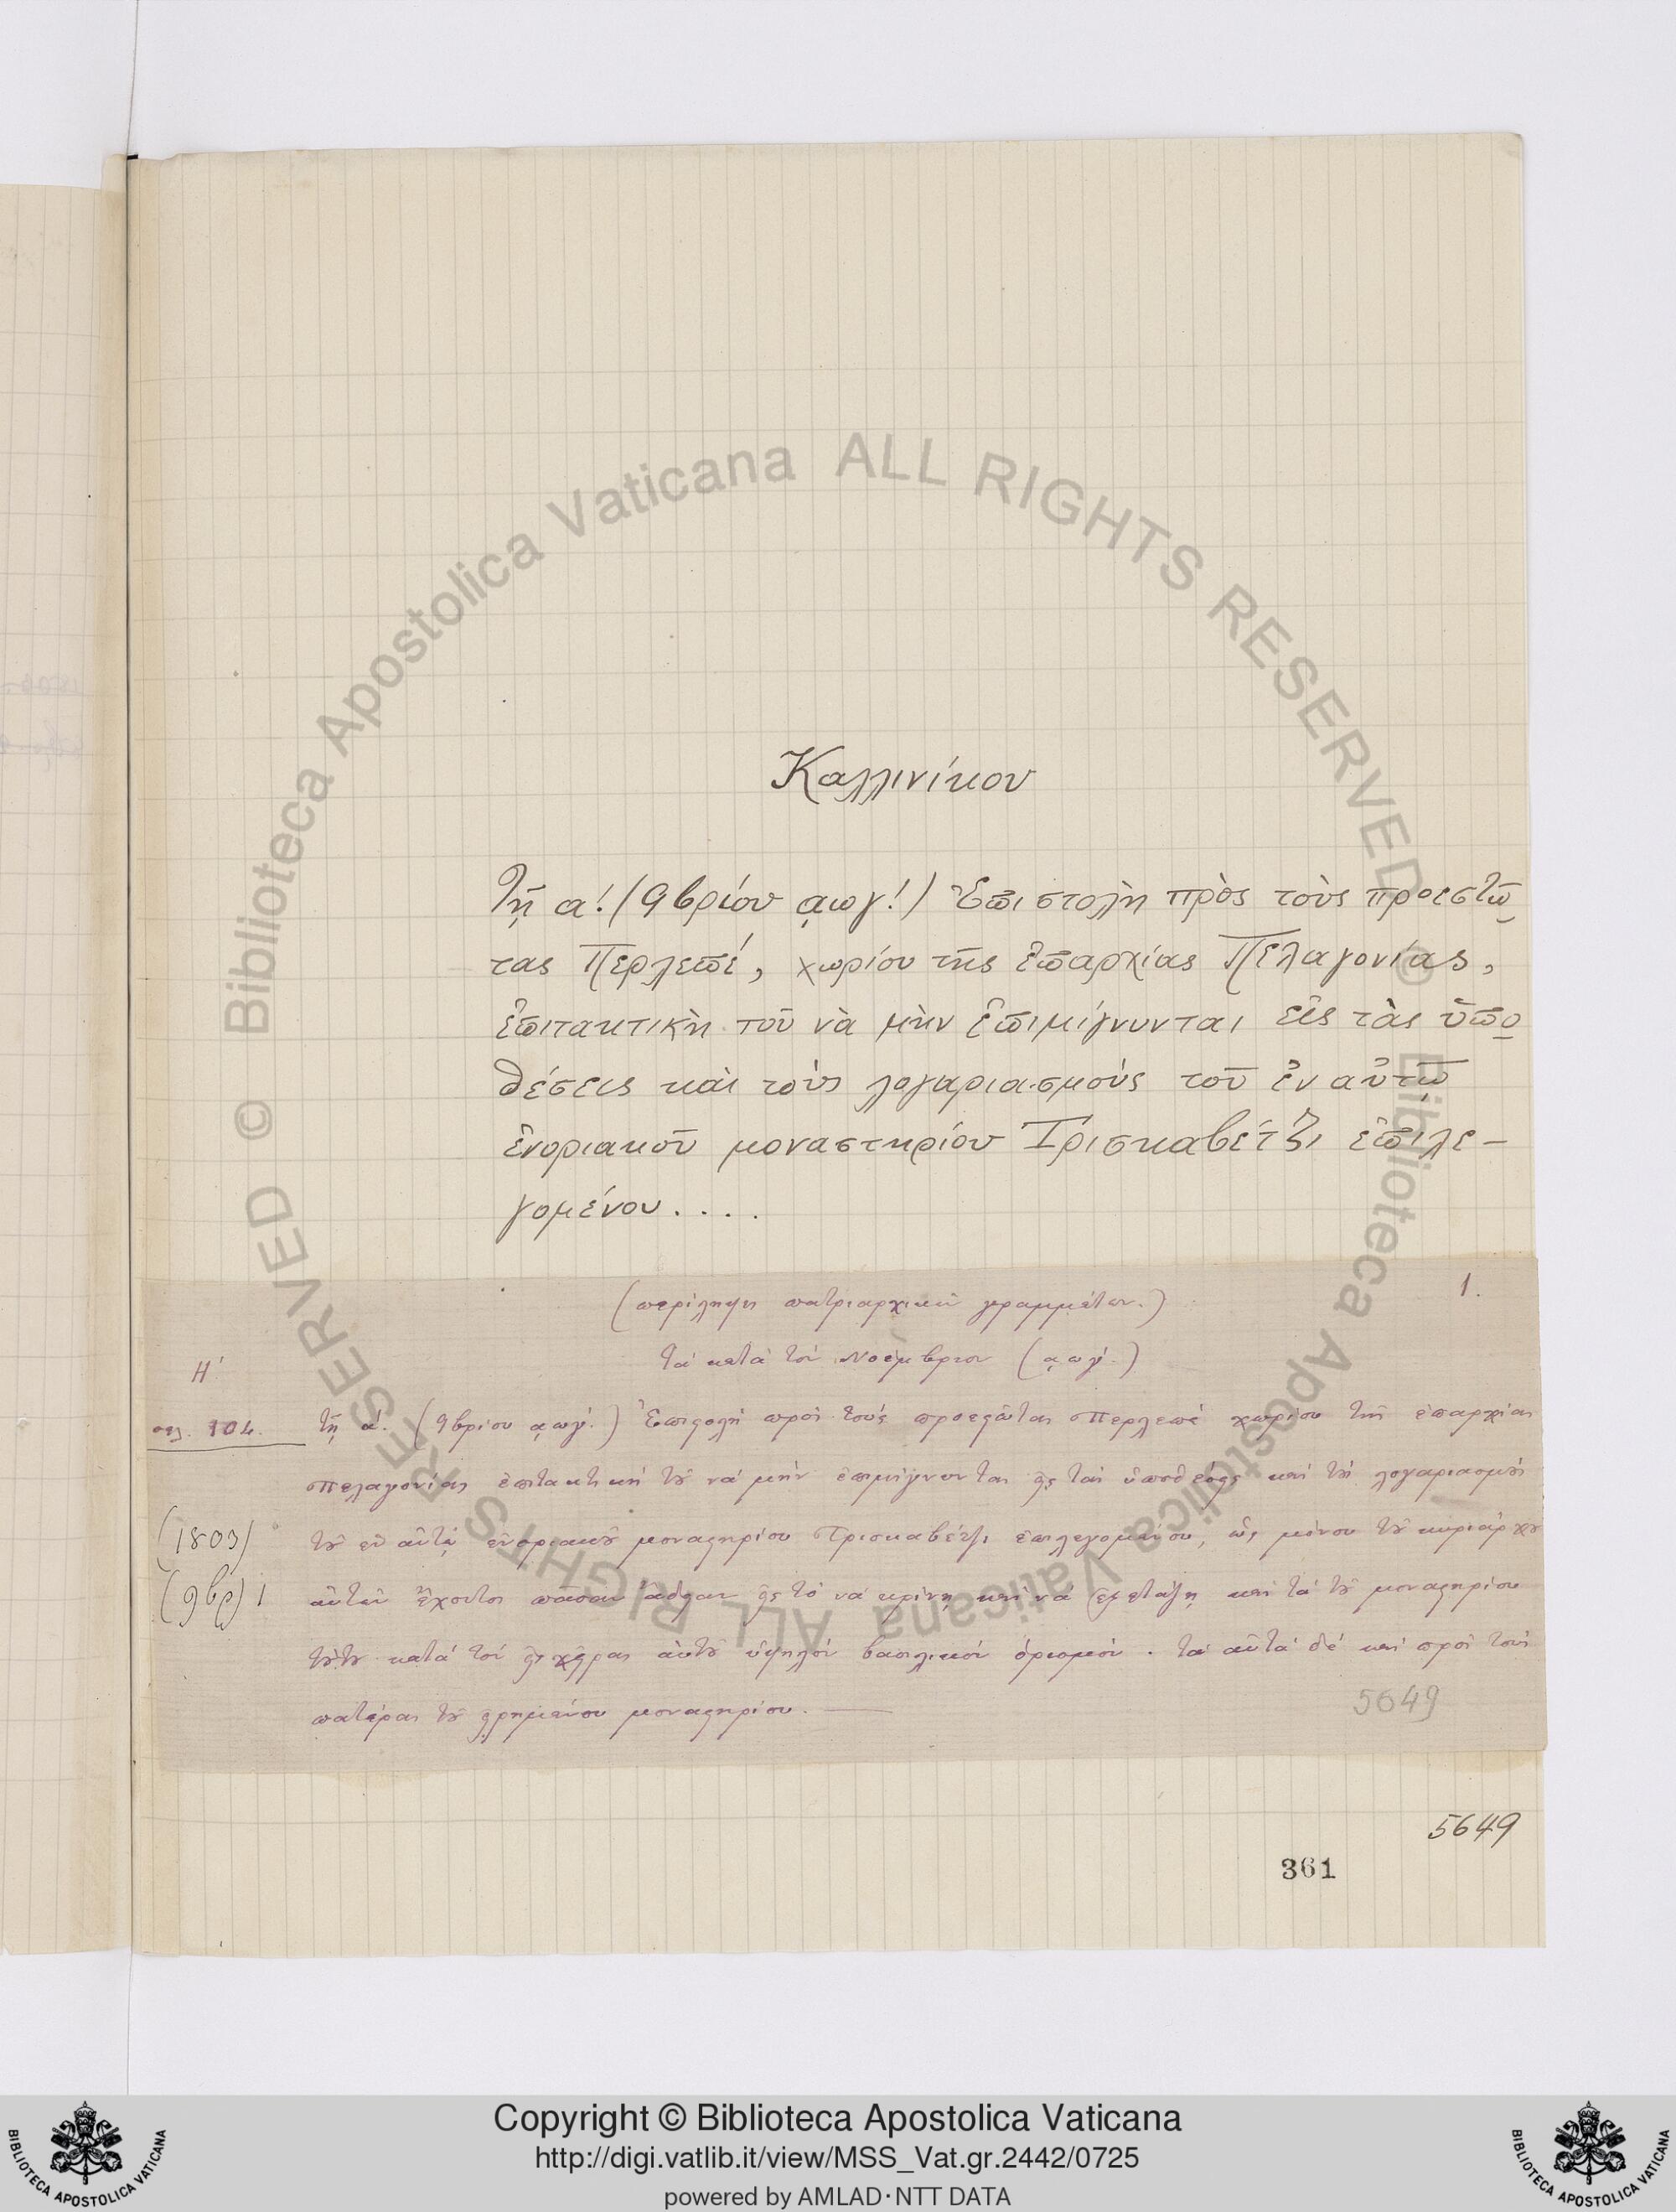 Καλλινίκου
Τῇ α! (9βρίου ͵αωγ!) Ἐπιστολὴ πρὸς τοὺς προεστῶ
τας Περλεπέ, χωρίου τῆς ἐπαρχίας Πελαγονίας,
ἐπιτακτικὴ τοῦ νὰ μὴν ἐπιμίγνυνται εἰς τὰς ὑπο
θέσεις καὶ τοὺς λογαριασμοὺς τοῦ ἐν αὐτῷ
ἐνοριακοῦ μοναστηρίου Τρισκαβέτζι ἐπιλε–
γομένου....
(περίληψη πατριαρχικῶν γραμμάτων.)
1.
τὰ κατὰ τὸν Νοέμβριον (͵αωγ΄.)
Η΄
σελ. 104.
τῇ α΄. (9βρίου ͵αωγ΄.) Ἐπιστολὴ πρὸς τοὺς προεστῶτας Περλεπὲ χωρίου τῆς ἐπαρχίας
Πελαγονίας ἐπιτακτικὴ τοῦ νὰ μὴν ἐπιμίγνυνται εἰς τὰς ὑποθέσεις καὶ τοὺς λογαριασμοὺς
(1803)
τοῦ ἐν αὐτῷ ἐνοριακοῦ μοναστηρίου Τρισκαβέτζι ἐπιλεγομένου, ὡς μόνου τοῦ κυριάρχου
(9βρ) 1
αὐτῶν ἔχοντος πᾶσαν ἄδειαν εἰς τὸ νὰ κρίνῃ καὶ νὰ ἐξετάζῃ καὶ τὰ τοῦ μοναστηρίου
τούτου κατὰ τὸν εἰς χεῖρας αὐτοῦ ὑψηλὸν βασιλικὸν ὁρισμόν. τὰ αὐτὰ δὲ καὶ πρὸς τοὺς
πατέρας τοῦ εἰρημένου μοναστηρίου.
5649
5649
361
© Biblioteca Apostolica Vaticana ALL RIGHTS RESERVED
© Biblioteca Apostolica Vaticana ALL RIGHTS RESERVED
BIBLIOTECA APOSTOLICA VATICANA
Copyright © Biblioteca Apostolica Vaticana
http://digi.vatlib.it/view/MSS_Vat.gr.2442/0725
powered by AMLAD·NTT DATA
BIBLIOTECA APOSTOLICA VATICANA